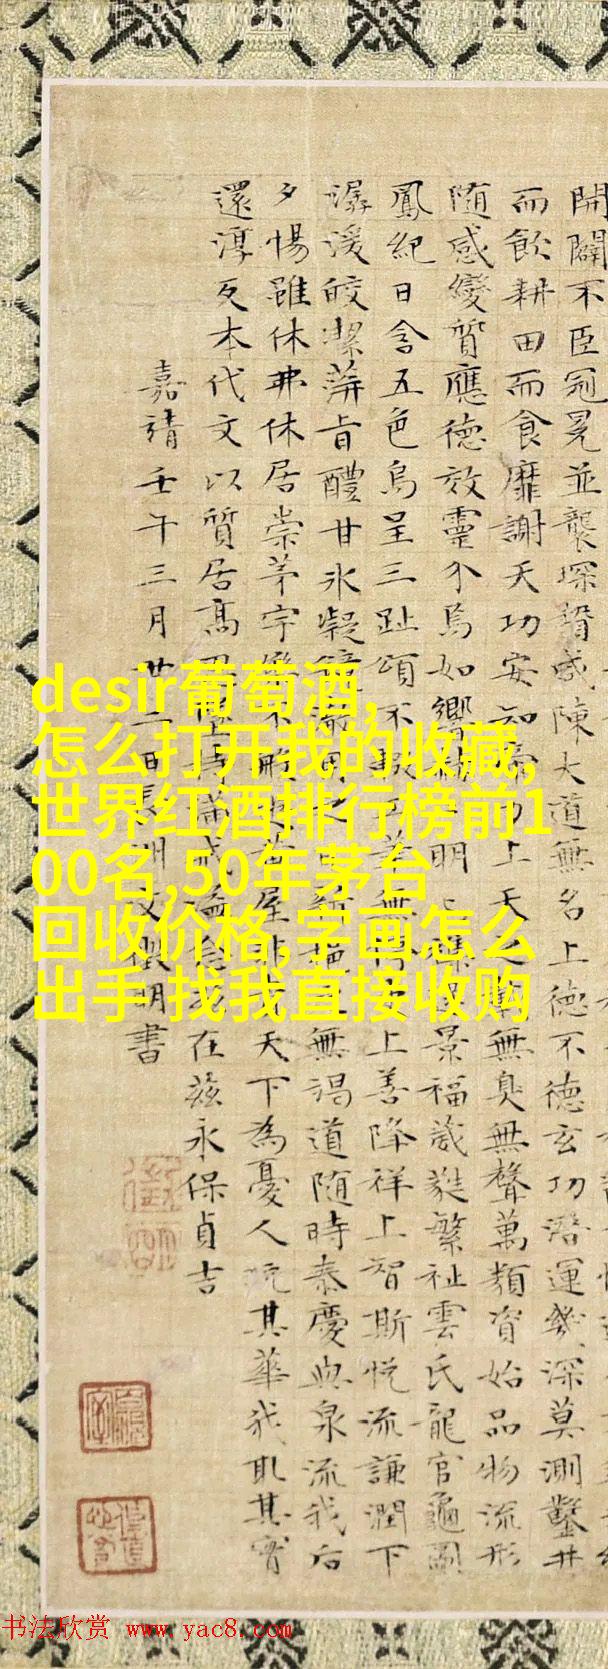 開闢不臣冠冕並襲琛賮咸陳大道無名上德不德玄功潛運幾深莫測鑿井
而飲耕田而食靡謝天功安知帝力上天之載無臭無聲萬類資始品物流形
随感變質應德效靈不焉如響赫明景福葳蕤繁祉雲氏龍官龜圖
鳳紀日含五色烏呈三趾頌不輟工筆無停史上善降祥上智斯悅流謙潤下
潺湲皎潔蓱旨醴甘冰凝鏡澈用之日新挹之無竭道随時泰慶與泉流我后
夕惕雖休弗休居崇茅宇樂不般遊黃屋非貴天下為憂人玩其華我取其實
還淳反本代文以質居高思墜持滿戒溢念茲在茲永保貞吉
嘉靖壬午三月廿二日長洲文徵明書
desir葡萄酒,
怎么打开我的收藏,
世界红酒排行榜前1
00名,50年茅台
回收价格,字画怎么
出手,找我直接收购
书法欣赏 www.yac8.com